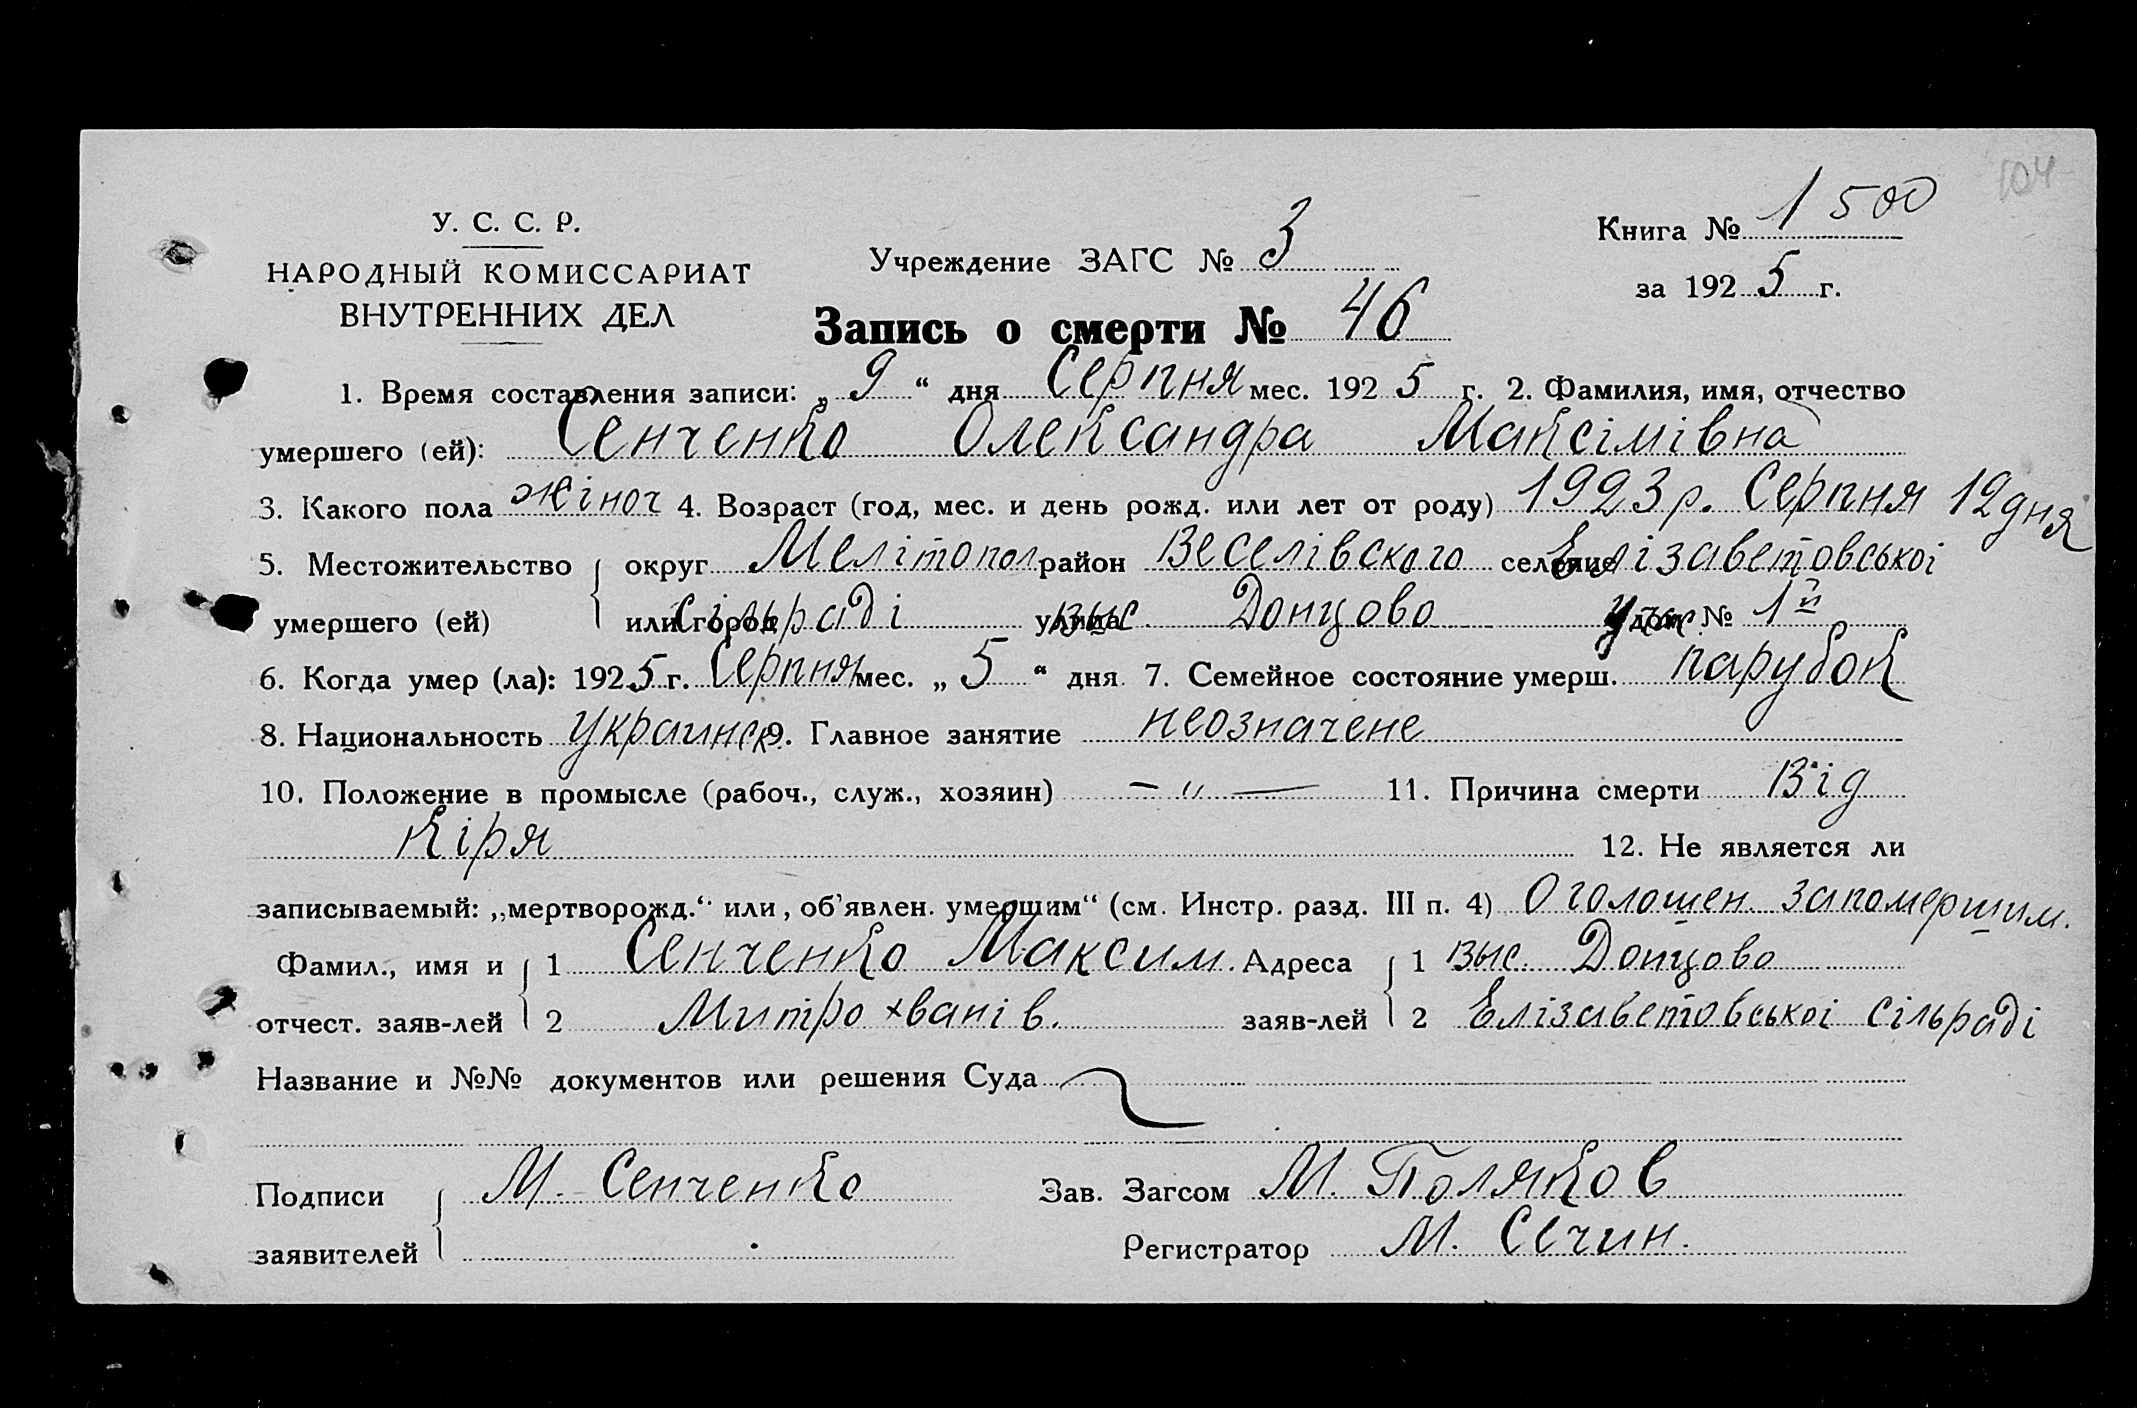 104
У. С. С. Р.
НАРОДНЫЙ КОМИССАРИАТ
ВНУТРЕННИХ ДЕЛ
Учреждение ЗАГС № 3
Книга № 1 500
за 1925 г.
Запись о смерти № 46
1. Время составления записи: „9“ дня Серпня мес. 1925 г. 2. Фамилия, имя, отчество
умершего (ей): Сенченко Олександра Максімівна
3. Какого пола жіноч 4. Возраст (год, мес. и день рожд. или лет от роду) 1923 р. Серпня 12 дня
5. Местожительство округ Мелітопол район Веселівского селение Елізаветовської
умершего (ей) или город сільраді улица выс Донцово дом Учас. № 1й
6. Когда умер (ла): 1925 г. Серпня мес. „5“ дня 7. Семейное состояние умерш. парубок
8. Национальность украинск 9. Главное занятие неозначене
10. Положение в промысле (рабоч., служ., хозяин) — „ — 11. Причина смерти Від
кіря 12. Не является ли
записываемый: „мертворожд.“ или „об'явлен. умершим“ (см. Инстр. разд. III п. 4) Оголошен запомершим.
Фамил., имя и 1 Сенченко Максим. Адреса 1 выс. Донцово
отчест. заяв-лей 2 Митрохванів. заяв-лей 2 Елізаветовської сільраді
Название и №№ документов или решения Суда
Подписи М. Сенченко Зав. Загсом М. Поляков
заявителей Регистратор М. Сечин.